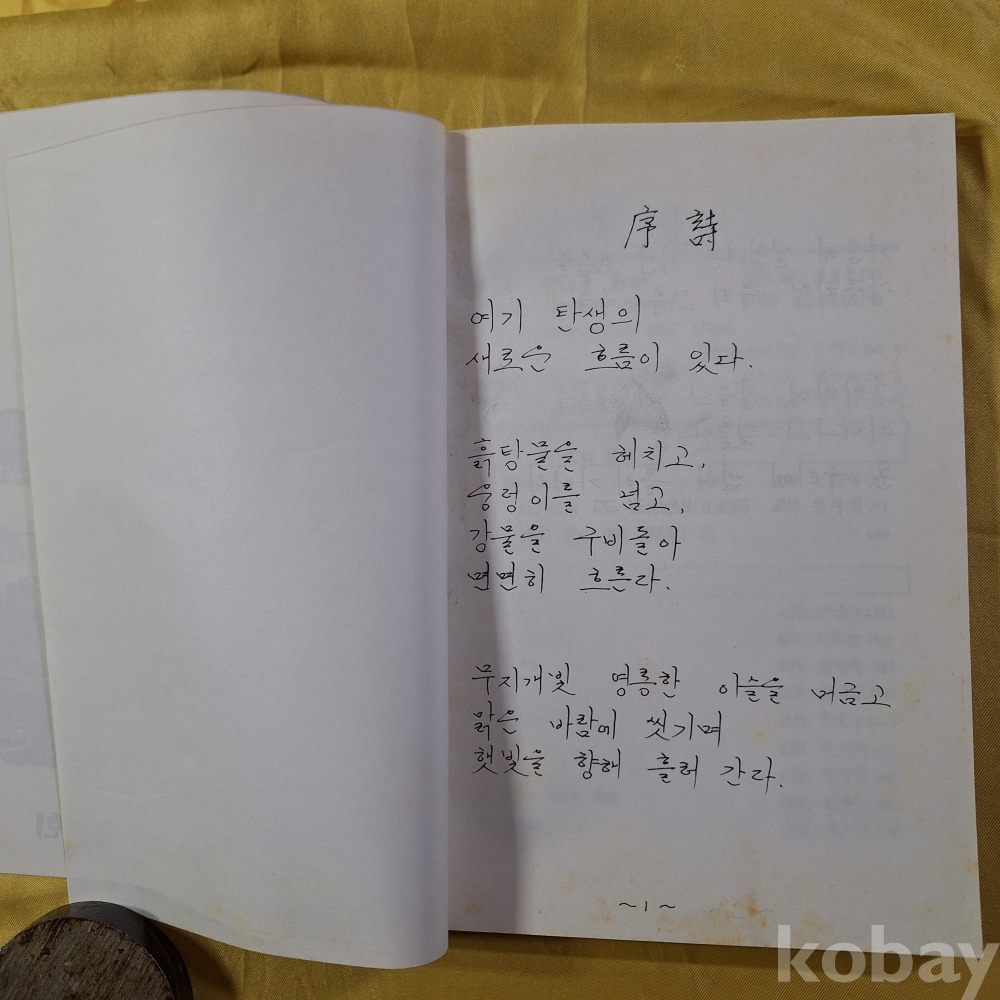 序詩
여기 탄생의
새로은 흐름이 있다.
흙탕물을 헤치고,
웅덩이를 넘고,
강물을 구비돌아
면면히 흐른다.
무지개빛 영롱한 이슬을 머금고
맑은 바람에 씻기며
햇빛을 향해 흘러 간다.
~1~
kobay